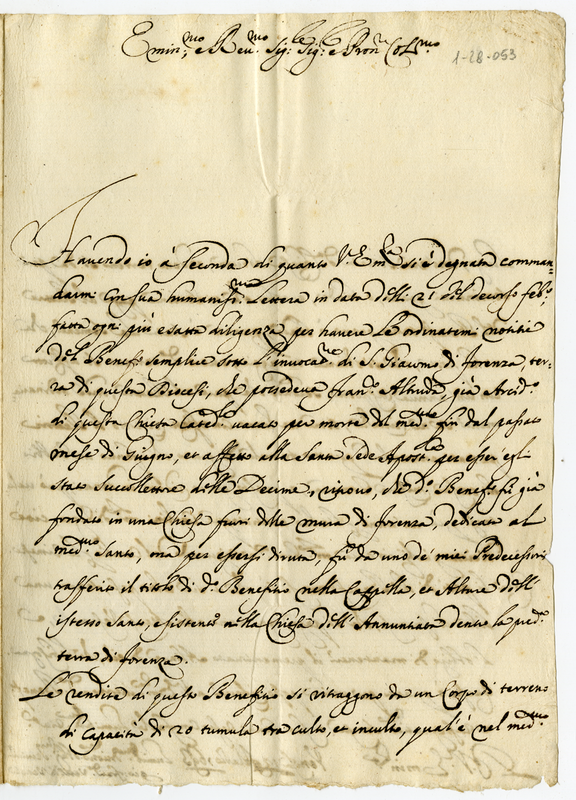 Emin.mo e Rev.mo Sig.r Sig.r e Pron Col.mo
1-28-053
Havendo io à seconda di quanto V. Em.za si è degnata comman=
darmi con sua humanissi.ma lettera in data delli 21 del decorso feb.o
fatta ogni più esatta diligenza per havere le ordinatemi notitie
del Benef.o semplice sotto l'invocaz.ne di S. Giacomo di Forenza, ter=
ra di questa Diocesi, che possedeva Fran.o Altruda, già Arcid.o
di questa Chiesa Cated.le vacato per morte del med.mo fin dal passato
mese di Giugno, et affetto alla Santa Sede Apost.lica per esser egli
stato succollettore delle Decime, ritrovo, che d.o Benef.o fù già
fondato in una Chiesa fuori delle mura di Forenza, dedicata al
med.mo Santo, ma per essersi diruta, fù da uno de' miei Predecessori
trasferito il titolo di d.o Benefitio nella Cappella, et Altare dell'
istesso Santo, esistente nella Chiesa dell'Annuntiata dentro la pred.a
terra di Forenza.
Le rendite di questo Benefitio si ritraggono da un Corpo di terreno
di capacità di 20 tumula tra culto, et inculto, qual'è nel med.mo